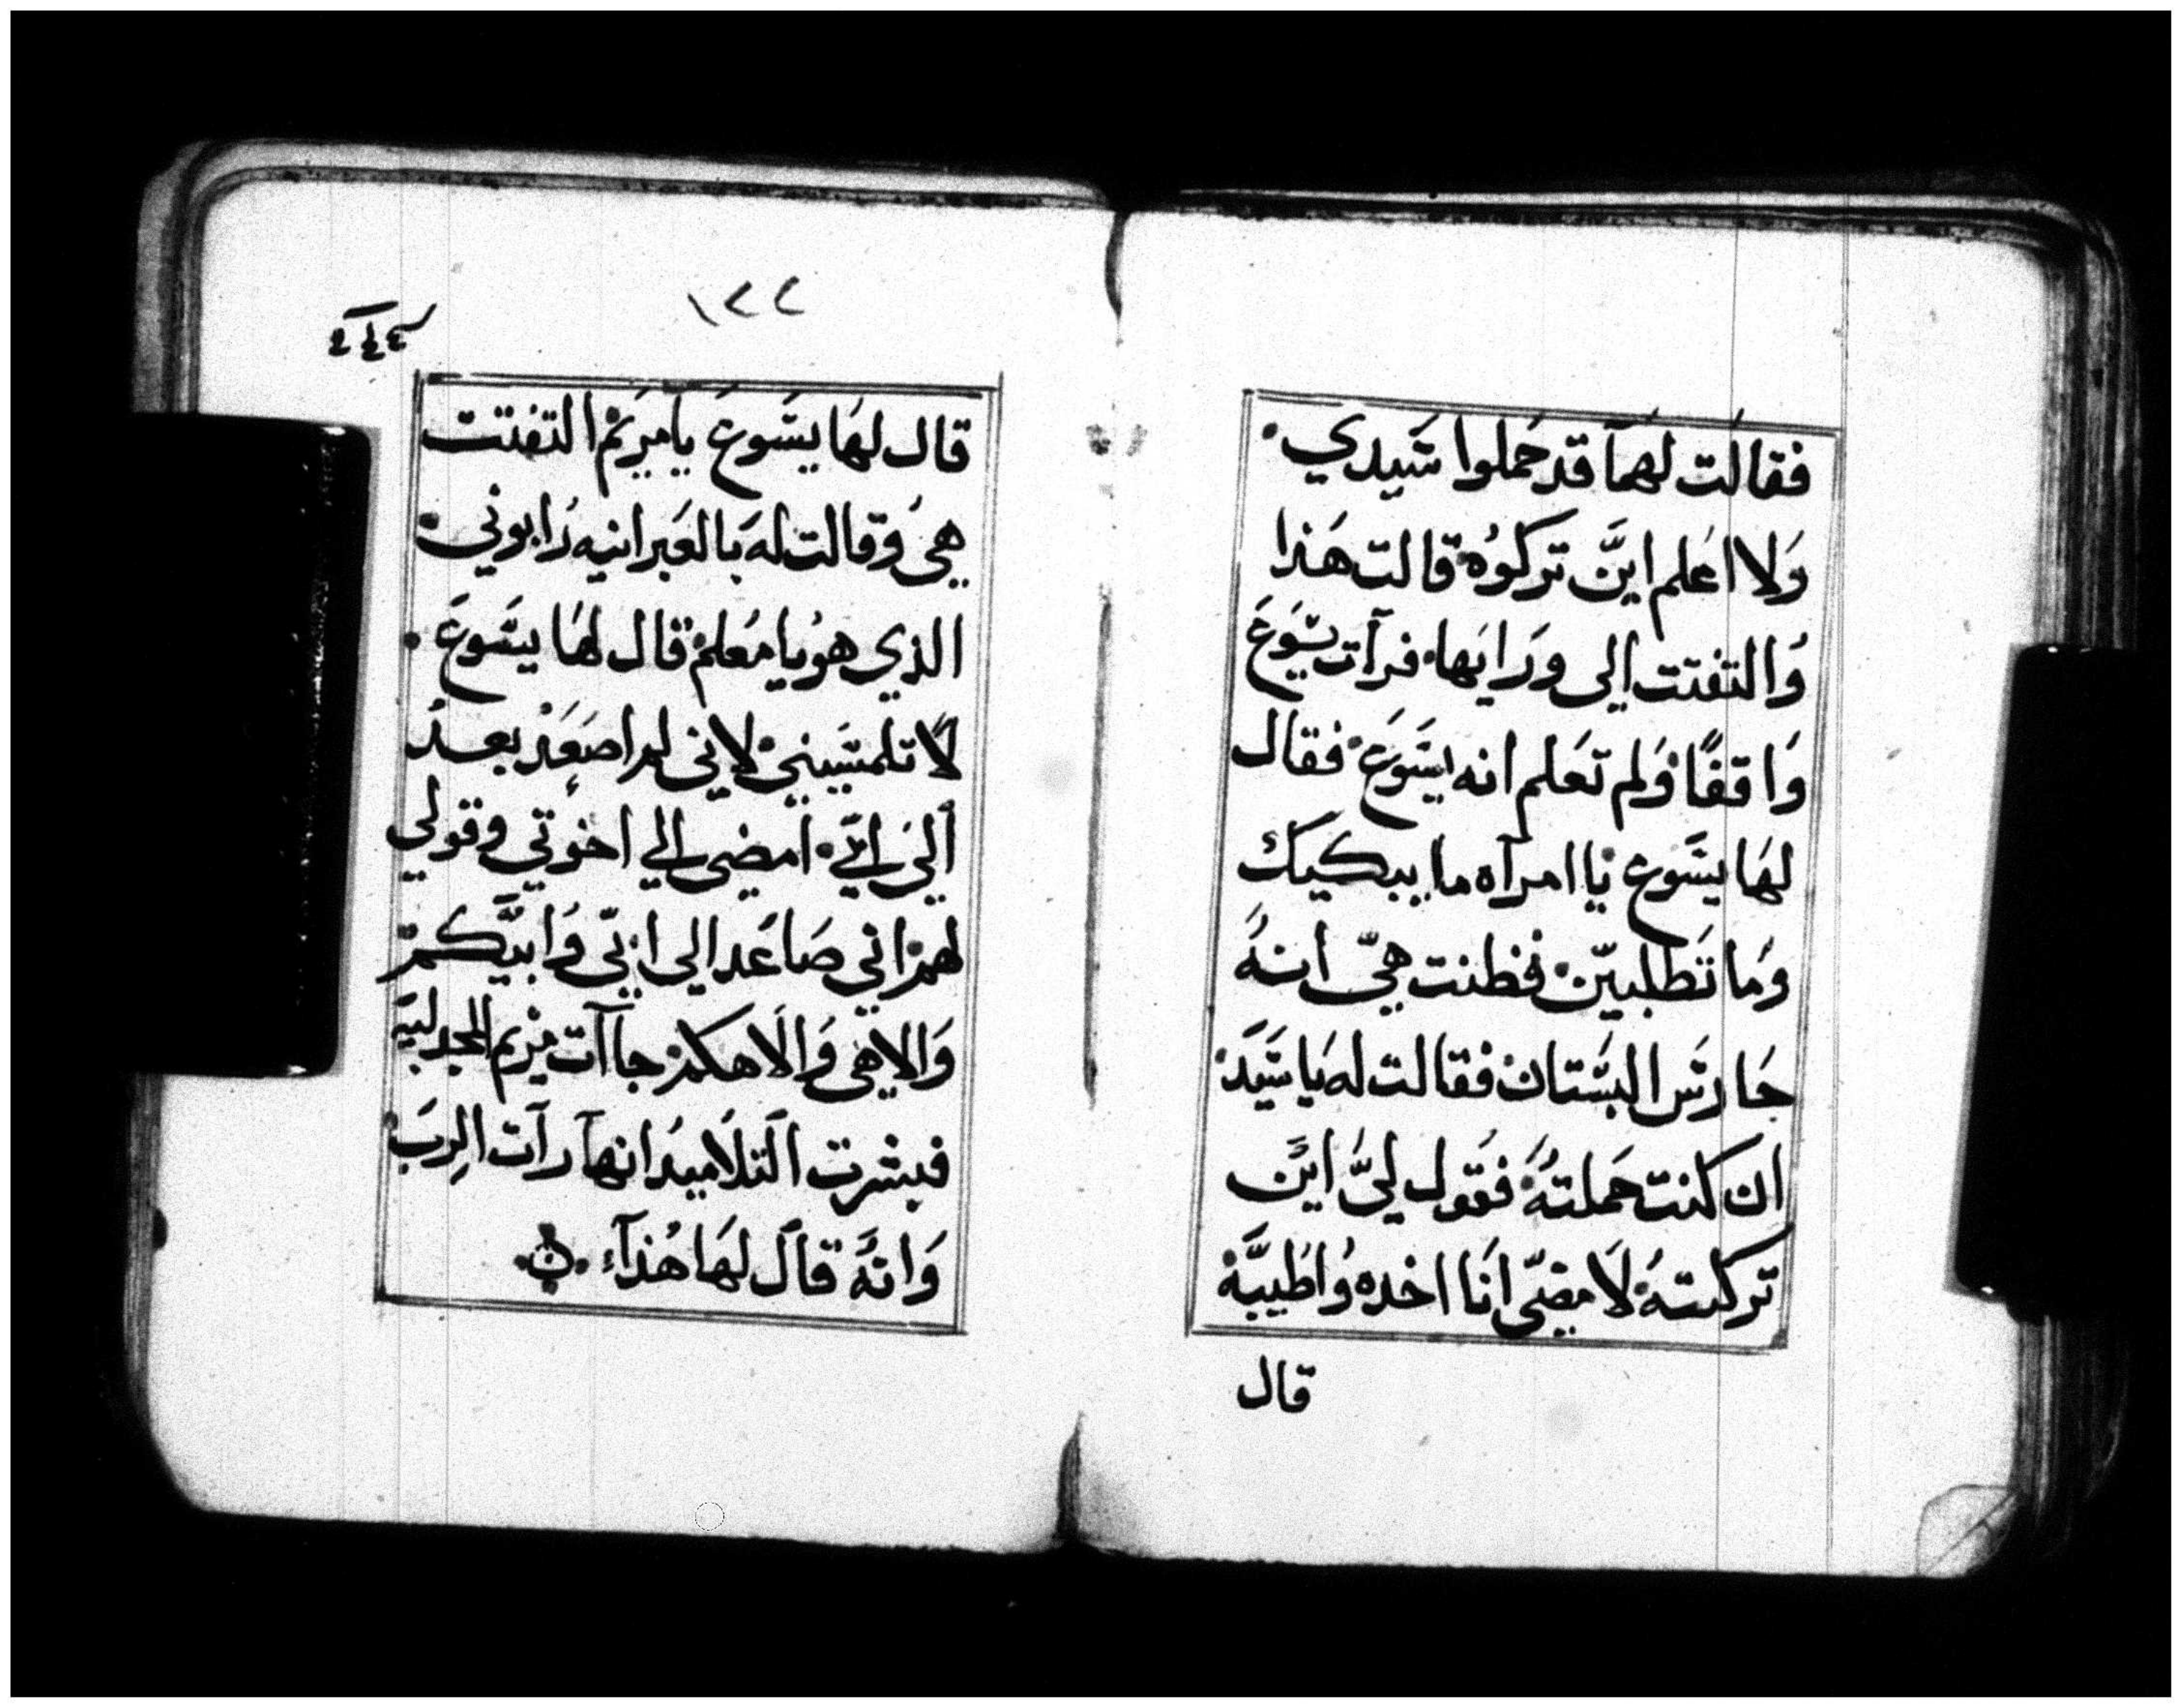 فقالت لهما قد حملوا سيدي.
ولا اعلم اين تركوه قالت هذا
والتفتت الى ورايها. فرآت يسوع
واقفا ولم تعلم انه يسوع فقال
لها يسوع يا امرآه ما يبكيك
وما تطلبين. فظنت هي انه
حارس البستان فقالت له يا سيد
ان كنت حملته فقول لي اين
تركته لامضى انا اخده واطيبه
قال
١٢٢
قال لها يسوع يا مريم التفتت
هي وقالت له بالعبرانيه رابوني.
الذي هو يا معلم قال لها يسوع.
لا تلمسيني لاني لم اصعد بعد
الي ابي. امضي الي اخوتي وقولي
لهم اني صاعد الى ابي وابيكم
والاهي والاهكم جاآت مريم المجدليه
فبشرت التلاميد انها رآت الرب
وانه قال لها هذآء